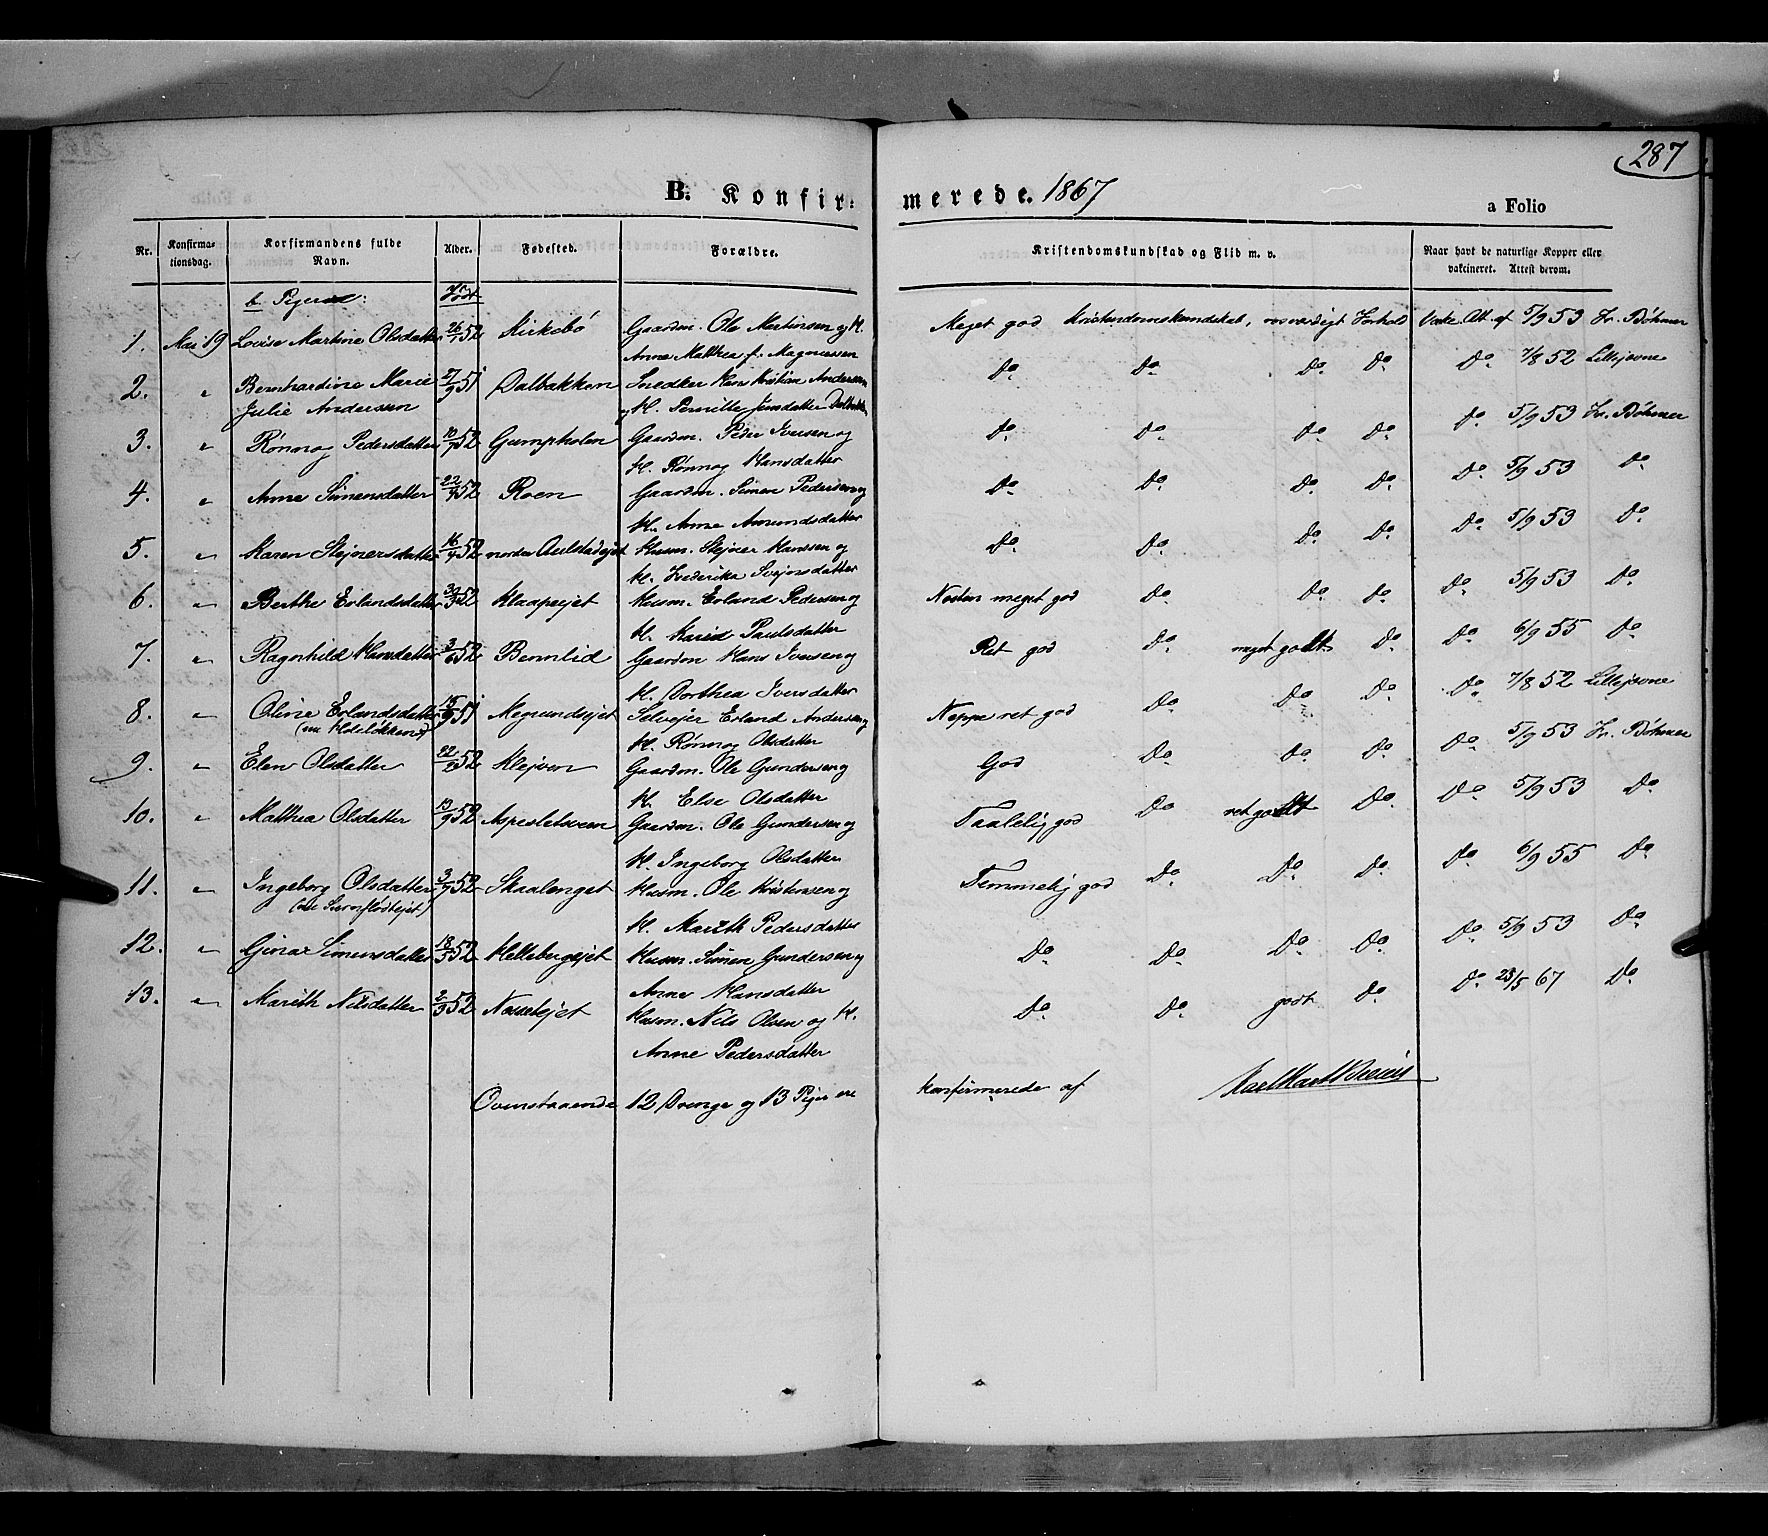 287
B. Konfir= merede. 1867 a Folio
Nr. Konfirma-tionsdag. Korfirmandens fulde Navn. Alder. Fødested. Forældre. Kristendomskundskab og Flid m. v. Naar havt de naturlige Kopper eller vaktineret. Attest derom.
b. Piger: Født
1. Mai 19 Lovise Martine Olsdatter 26/1 52 Gaardm. Ole Martinsen og K. Meget god Kristendomskundskab, rosværdigt Forhold Vakc. Att. af 5/9 53 Fr. Bøhmer
Anne Matthea f. Magnussen
2. " Bernhardine Marie 27/9 51 Dalbakken Snedker Hans Kristian Andersen Do. Do. Do. Do. Do. 7/8 52 Lillejsvne
Julie Andersen og K. Pernille Jensdatter
3. " Rønnog Pedersdatter 10/7 52 Gumpholen Gaardm. Peder Iversen og Do. Do. Do. Do. Do. 5/9 53 Fr. Bøhmer
K. Rønnog Hansdatter
4. " Anne Simensdatter 22/7 52 Roen Gaardm. Simen Pedersen og Do. Do. Do. Do. Do. 5/9 53 Do.
K. Anne Amundsdatter
5. " Karen Stejnersdatter 16/4 52 nordre Aulstadejet Husm. Stejner Hanssen og Do. Do. Do. Do. Do. 5/9 53 Do.
K. Frederika Svejnsdatter
6. " Berthe Erlandsdatter 30/3 52 Klaapejet Husm. Erland Pedersen og Næsten meget god Do. Do. Do. Do. 5/9 53 Do.
K. Karid Paulsdatter
7. " Ragnhild Hansdatter 3/6 52 Bennlid Gaardm Hans Iversen og Ret god Do. meget godt Do. Do. 6/9 55 Do.
K. Dorthea Iversdatter
8. " Oline Erlandsdatter 15/9 51 Megrundsejet Selvejer Erland Andersen og Neppe ret god Do. Do. Do. Do. 7/8 52 Lillejsvne
K. Rønnog Olsdatter
9. " Elen Olsdatter 22/2 52 Klejven Gaardm. Ole Gundersen og God Do. Do. Do. Do. 5/9 53 Fr. Bøhmer
K. Else Olsdatter
10. " Matthea Olsdatter 19/9 52 Aspesletsveen Gaardm. Ole Gundersen og Taalelig god Do. ret godt Do. Do. 5/9 53 Do.
K. Ingeborg Olsdatter
11. " Ingeborg Olsdatter 3/7 52 Skaalenget Husm. Ole Kristensen og Temmelig god Do. Do. Do. Do. 6/9 55 Do.
K. Marith Pedersdatter
12. " Gina Simensdatter 18/5 52 Hellebergejet Husm. Simen Gundersen og Do. Do. Do. Do. Do. 5/9 53 Do.
Anne Hansdatter
13. " Marith Nilsdatter 2/3 52 Husm. Nils Olsen og K. Do. Do. godt Do. Do. 23/5 67 Do.
Anne Pedersdatter
Ovenstaaende 12 Drenge og 13 Piger ere konfirmerede af